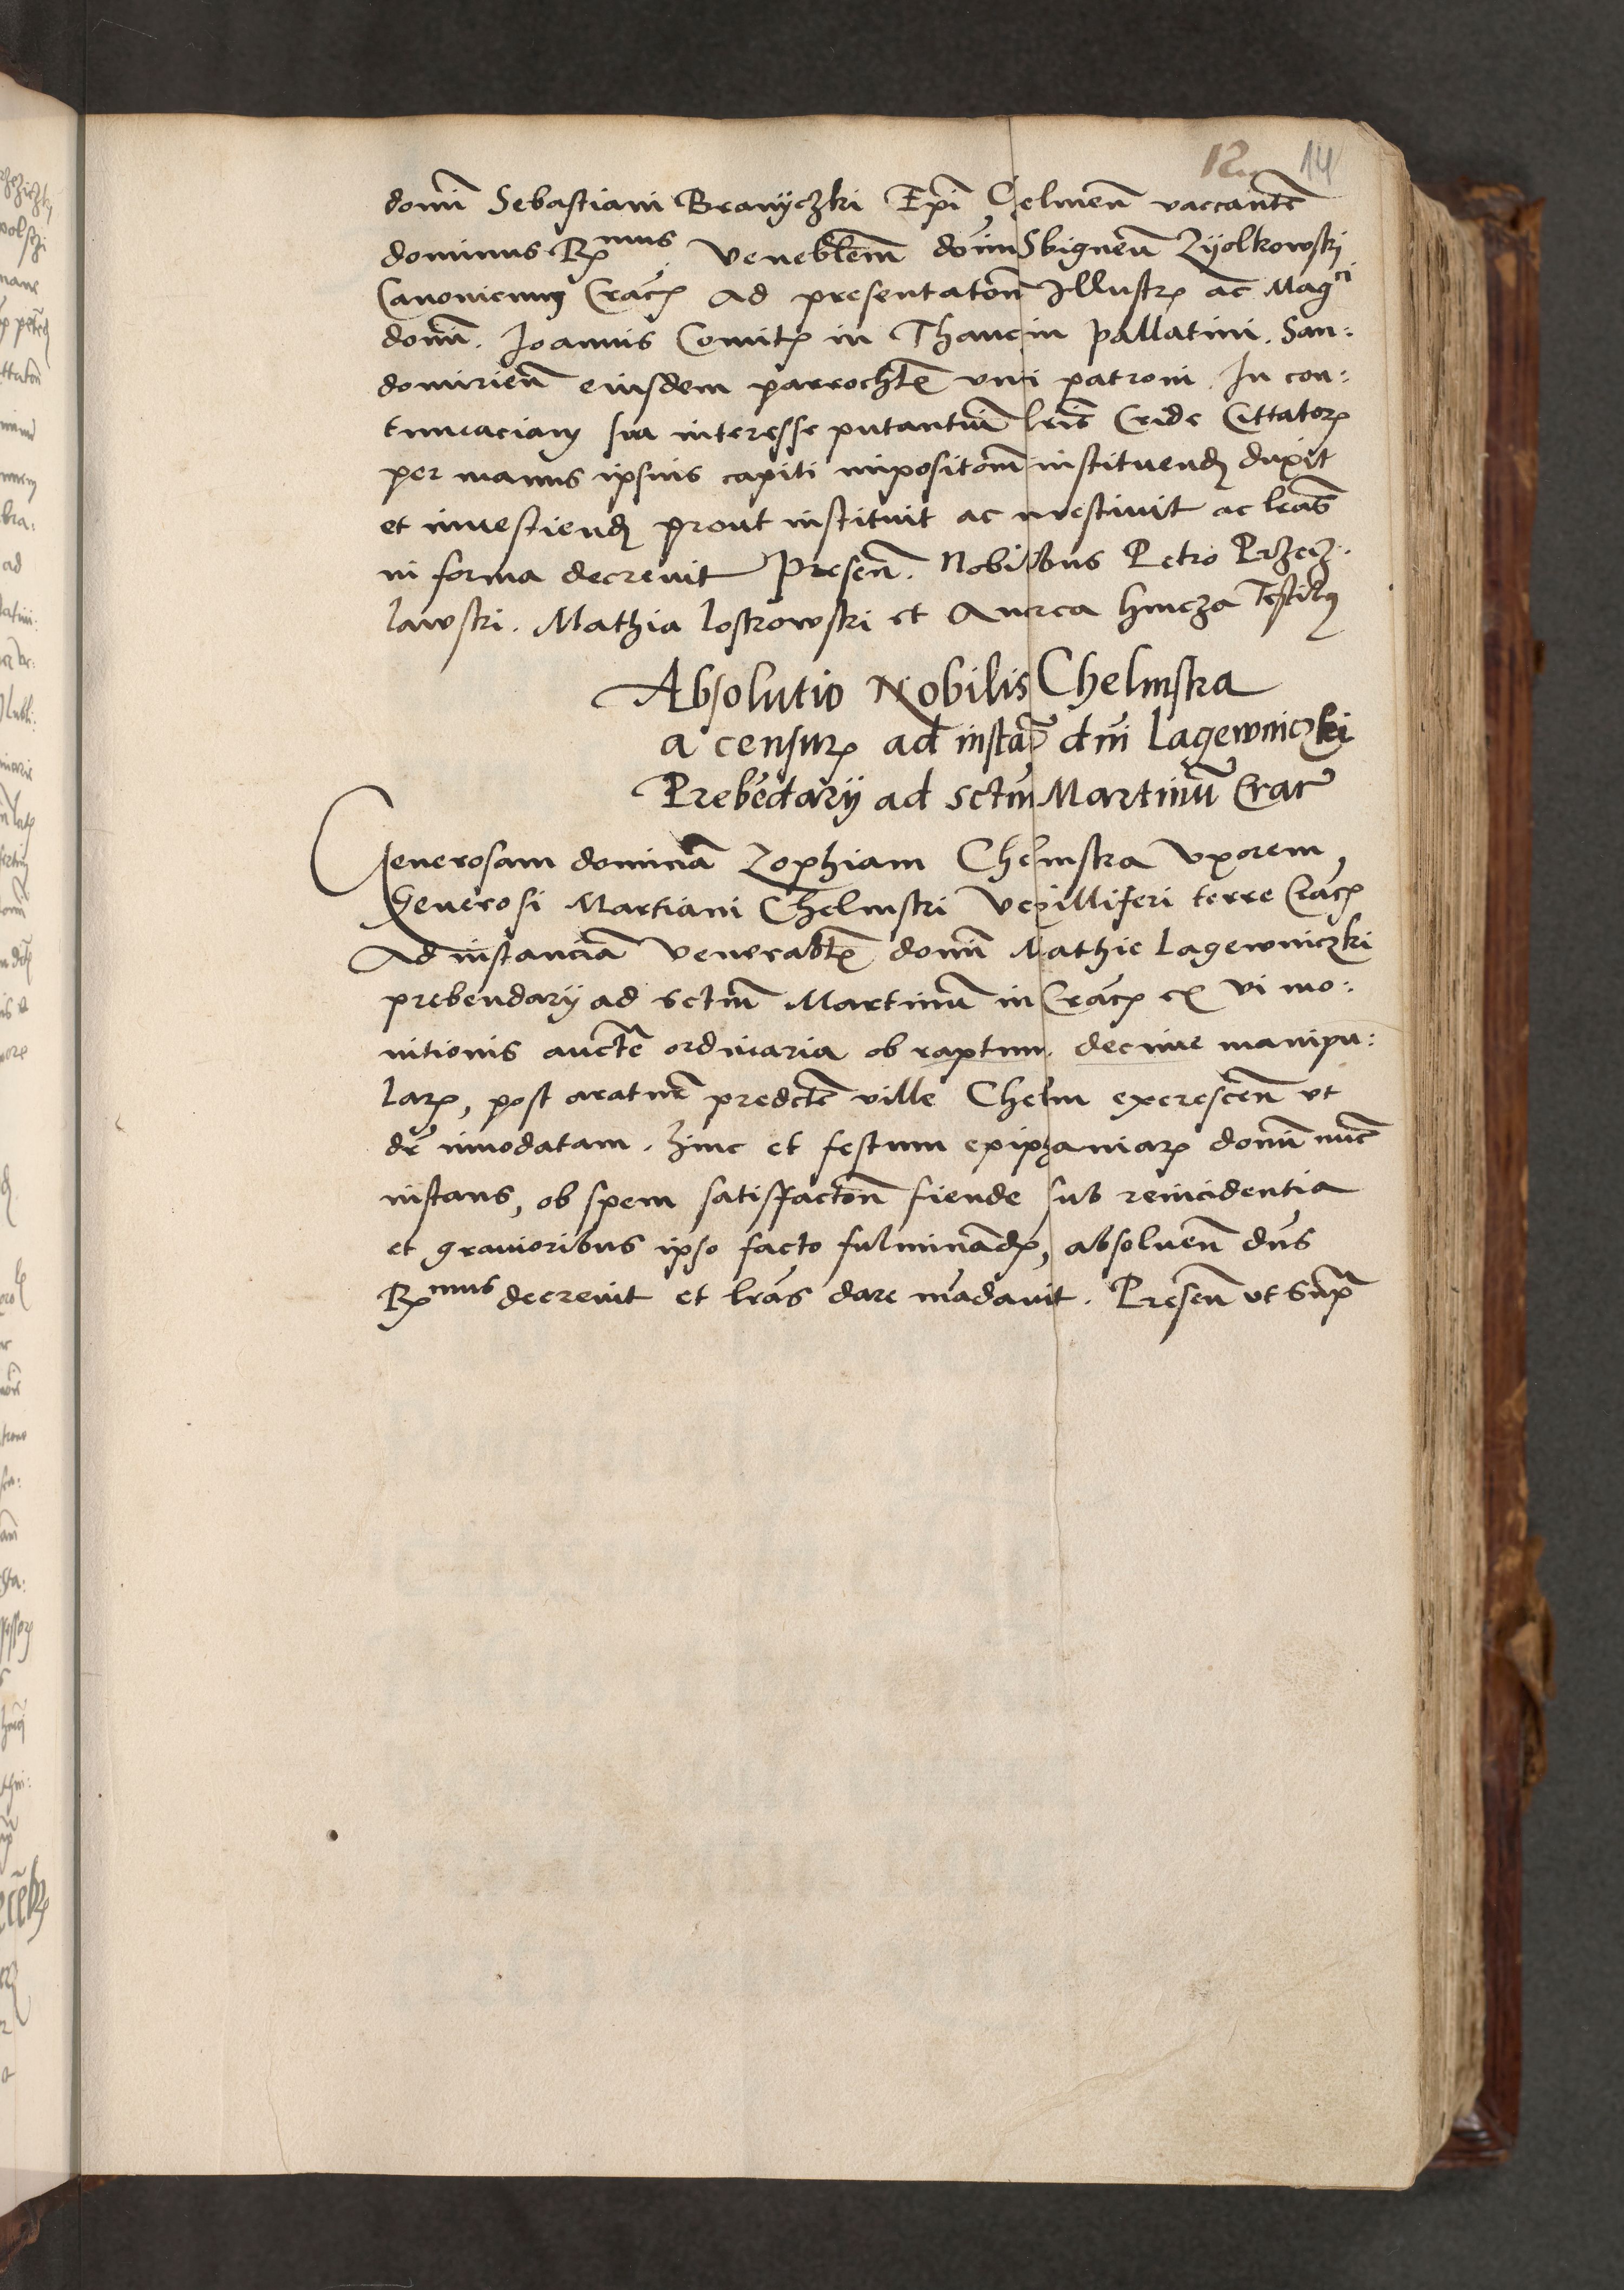 12 14
domī Sebastiani Branyczki Epī Chelmen̄ vaccantē
dominus Rmus Veneblem̄ domm̄ Sbigneū Zyolkowski
Canonicum Cracꝭ ad presentatōn Illustrꝭ ac Magci
domī. Joannis Comitꝭ in Thancin pallatini. San:
domirien̄ eiusdem parrochlē veri patroni. In con:
tumaciam sua interesse putantiū lrīs Cride Cittatorꝭ
per manus ipsius capiti impositōm instituendꝭ duxit
et inuestiendꝭ prout instituit ac inuestiuit ac lrās
in forma decreuit Presen̄. Nobilibus Petro Przecz:
lawski. Mathia loskowski et Andrea hincza Testibꝫ
Absolutio Nobilis Chelmska
a censurꝭ ad instā dnī Lagewniczki
Prebēdarij ad sctm̄ Martinū Crac̄
Generosam dominā Zophiam Chelmska vxorem
Generosi Martiani Chelmski Vexilliferi terre Cracꝭ
Ad instanciā Venerablꝭ domī Mathie Lagewniczki
prebendarij ad sctm̄ Martinū in Cracꝭ ex vi mo:
nitionis auctē ordinaria ob raptum. decime manipu:
larꝭ, post araturē predctē ville Chelm excrescen̄ vt
dr̄ innodatam. hinc et festum epiphaniarꝭ domī nūc
instans, ob spem satisfactōn fiende sub reincidentia
et grauioribus ipso facto fulminādꝭ, absoluen̄ dns̄
Rmus decreuit et lrās dare mādauit. Presen̄ vt supꝛā